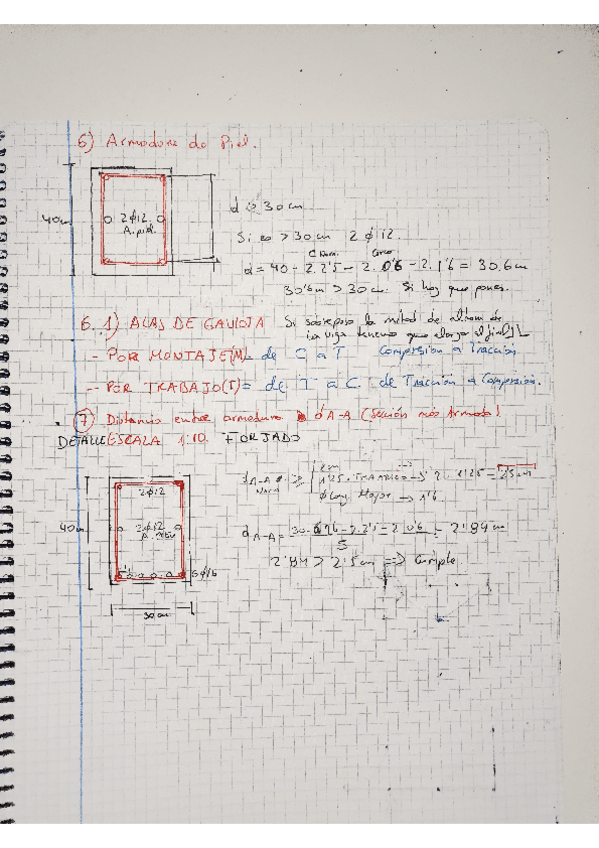 6) Armadura de Piel.
40cm
2Ø12
A. piel.
d ≥ 30 cm
Si es > 30 cm 2 Ø 12
C Nom. Cerco
d = 40 - 2.2'5 - 2.0'6 - 2.1'6 = 30.6cm
30'6cm > 30cm. Si hay que poner.
6.1) ALAS DE GAVIOTA Si sobrepasa la mitad de altura de
la viga tenemos que alargar el
- POR MONTAJE(M)= de C a T Compresión a Tracción
- POR TRABAJO(T)= de T a C. de Tracción a Compresión.
7) Distancia entre armadura d A-A (Sección más Armada)
DETALLE ESCALA 1:10. FORJADO
2Ø12
40cm
2Ø12
A. Piel
6Ø16
30 cm
d A-A ≥ 2cm
1'25. T.MARIDO → 2.1'25 = 2'5cm
Ø Long. Mayor → 1'6
d A-A = 30-6.1'6-2.2'5-2.0'6 = 2'84 cm
5
2'84 > 2'5cm => Cumple.